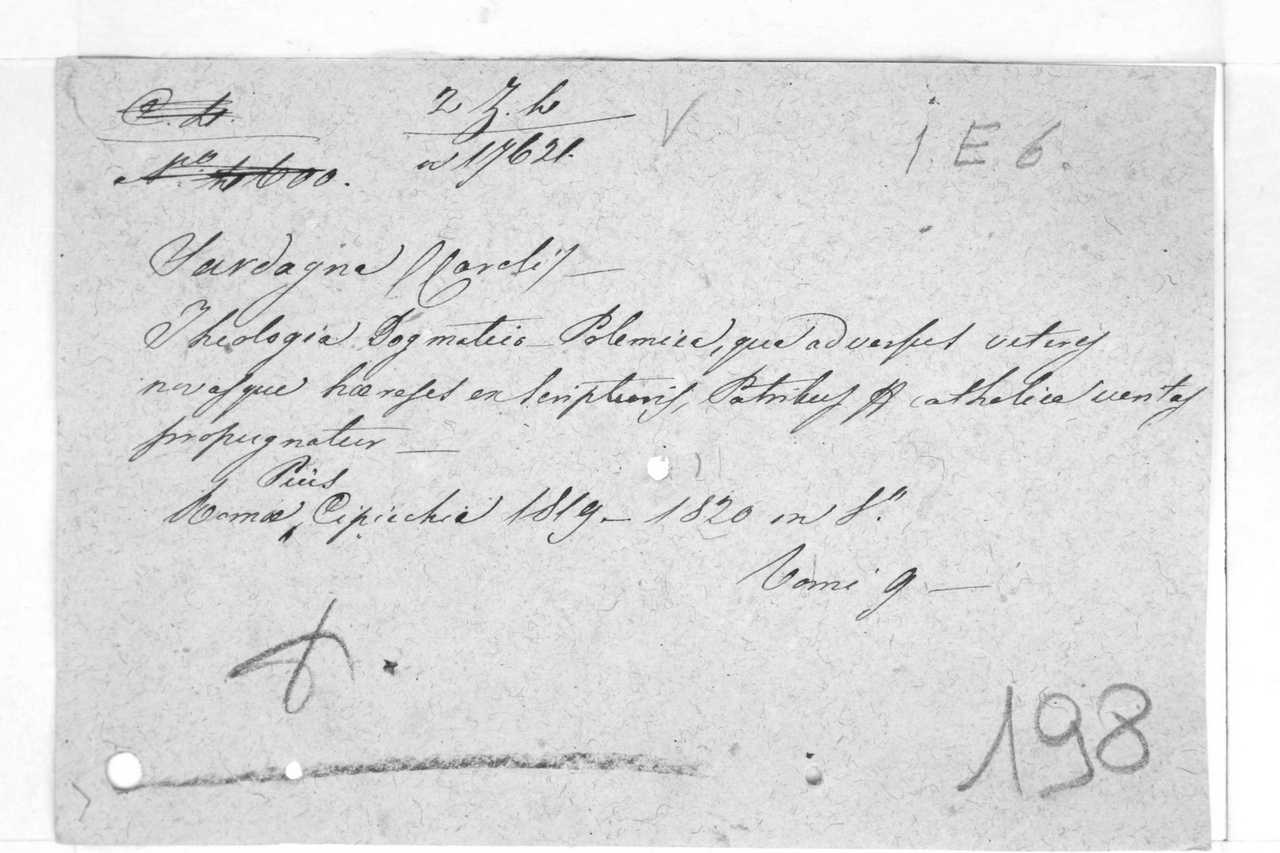 C. L.
2 Z. h
No. 4600.
n 17621.
1. E. 6.
Sardagna (Caroli) —
Theologia Dogmatico-Polemica, qua adversus veteres
novasque hæreses ex Scripturis, Patribus & catholica veritas
propugnatur —
Puis
Romæ, Cipicchia 1819 – 1820 in 8.°
Tomi 9 —
198